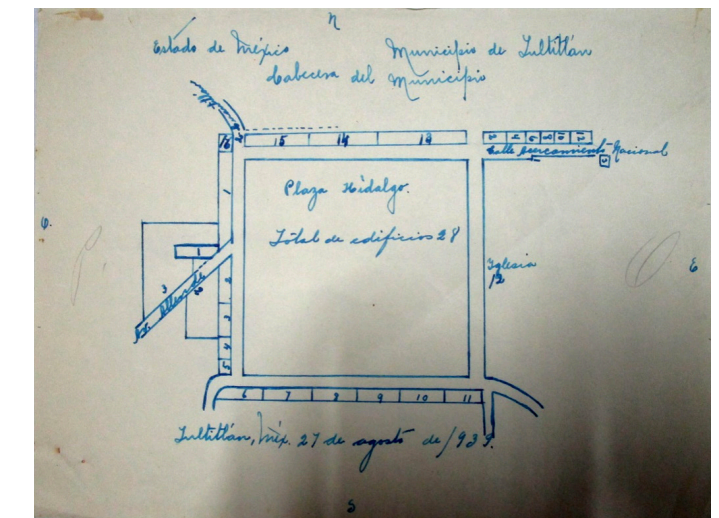 N
Estado de México Municipio de Tultitlán
Cabecera del Municipio
16 15 14 13
Calle Nacional
Plaza Hidalgo.
1
O.
Total de edificios 28
1
Iglesia
12
E
3
Av. Allende
2
3
4
5
6 7 8 9 10 11
Tultitlán, Méx. 27 de agosto de 1935.
S